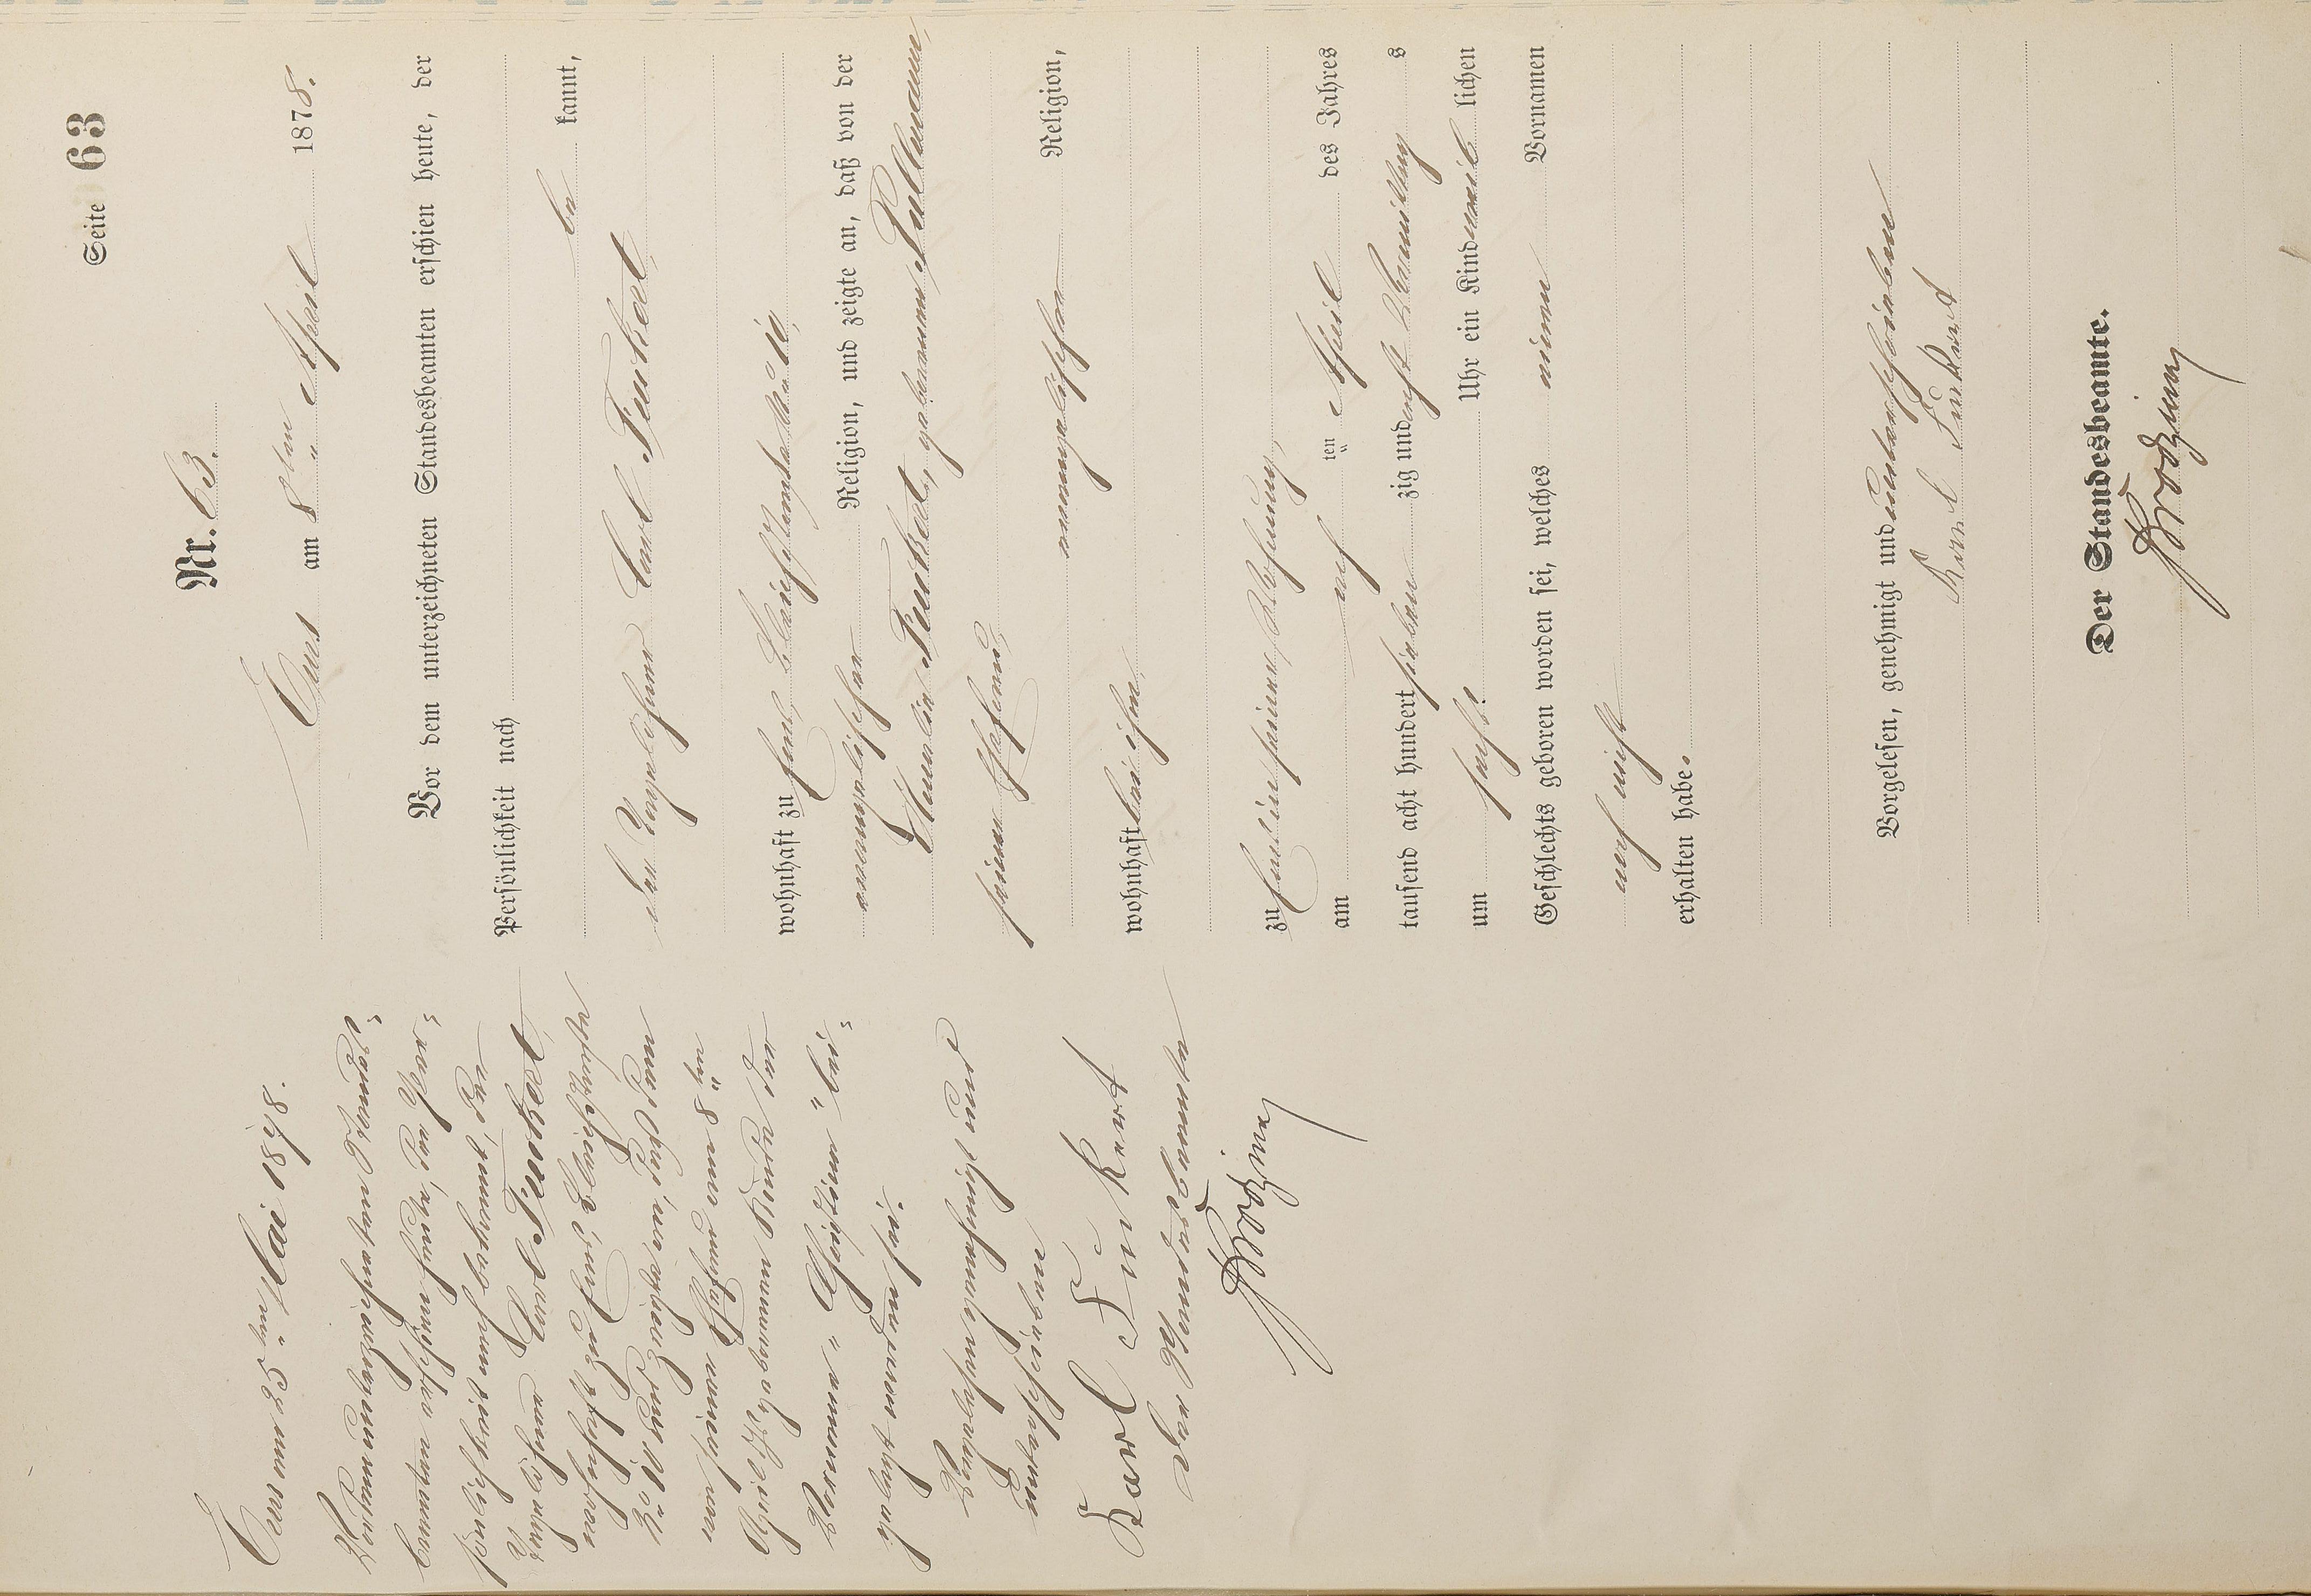 Seite 63
Nr. 63.
Ems am 8ten April 1878.
Vor dem unterzeichneten Standesbeamten erschien heute, der
Persönlichkeit nach
be kannt,
der Tagelöhner Carl Finkert,
wohnhaft zu Ems,
evangelischer Religion, und zeigte an, daß von der
Finkert, geborenen Pullmann,
seiner Ehefrau,
evangelischer Religion,
wohnhaft bei ihm
zu Ems in seiner Wohnung,
am acht ten April des Jahres
tausend acht hundert siebenzig und acht Vormittags
um sechs Uhr ein Kind weiblichen
Geschlechts geboren worden sei, welches einen Vornamen
noch nicht
erhalten habe.
Vorgelesen, genehmigt und unterschrieben
Karl Finkert
Der Standesbeamte.
Ems am 25ten Mai 1878.
Vor dem unterzeichneten Standes=
beamten erschien heute, der Per=
sönlichkeit nach bekannt, der
Tagelöhner Carl Finkert,
wohnhaft zu Ems,
und zeigte an, daß dem
von seiner Ehefrau am 8ten
April geborenen Kinde der
Vorname "Christine" bei=
gelegt worden sei.
Vorgelesen, genehmigt und
unterschrieben
Karl Finkert
Der Standesbeamte